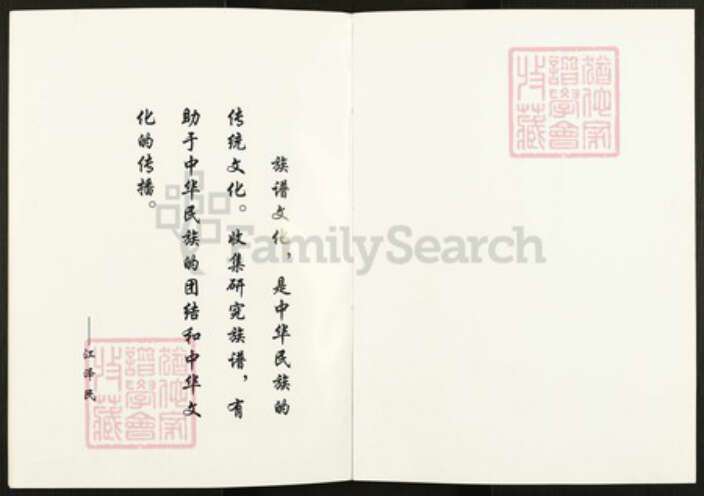 族谱文化，是中华民族的
传统文化。收集研究族谱，有
助于中华民族的团结和中华文
化的传播。
——江泽民
FamilySearch
猶他家
譜學會
收藏
猶他家
譜學會
收藏